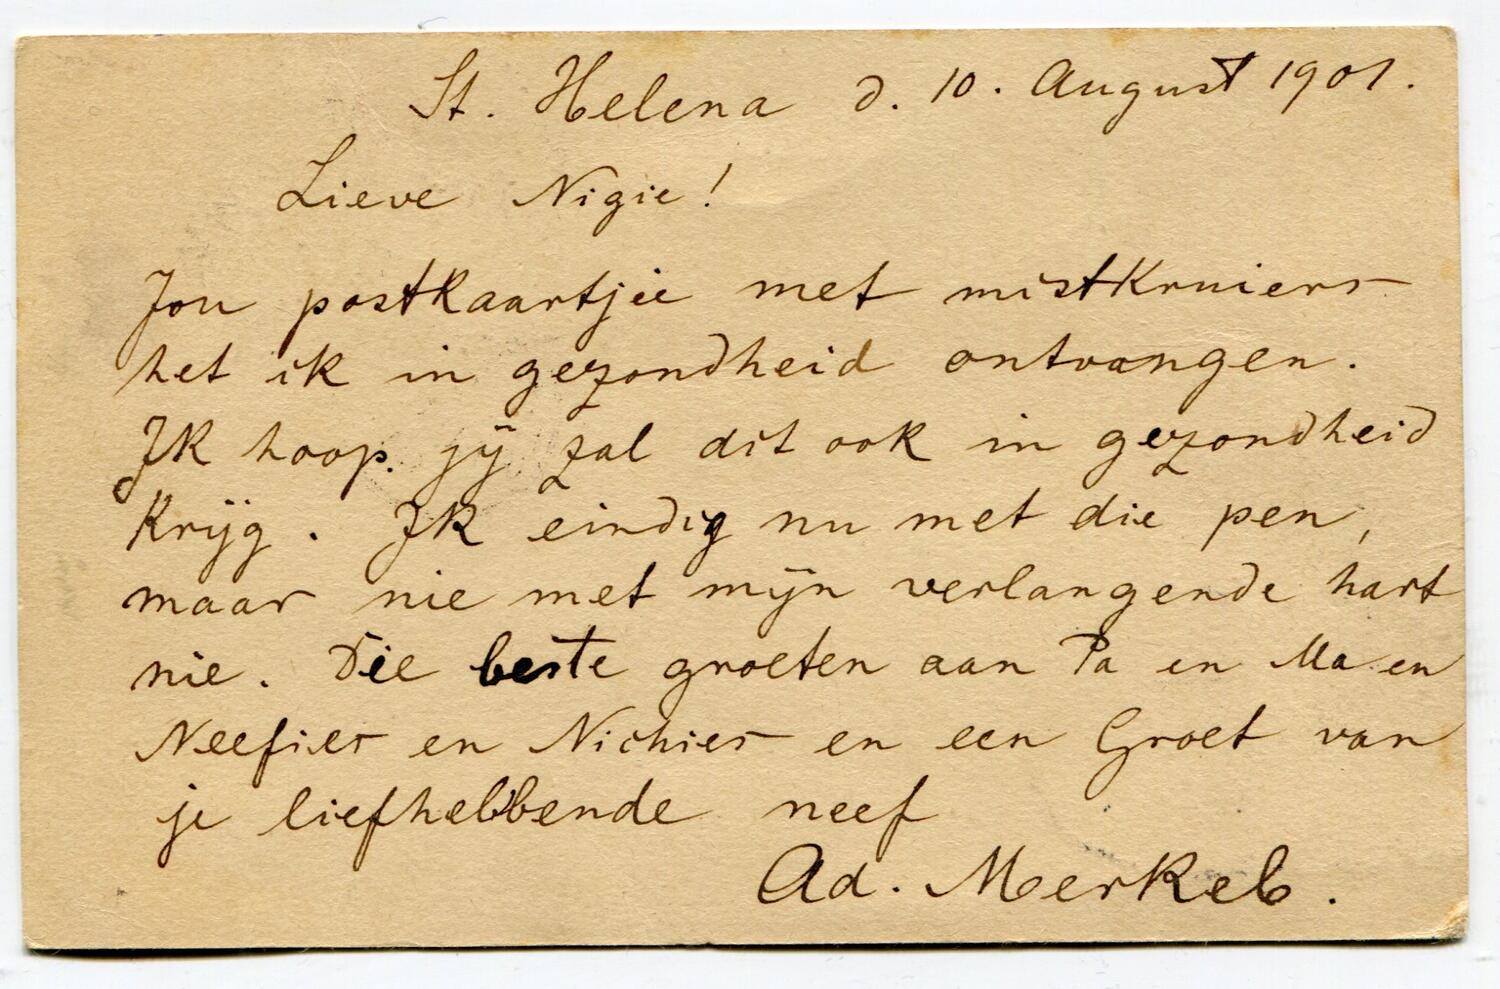 St. Helena d. 10. August 1901.
Lieve Nigie!
Jou postkaartjie met mistkruiers
het ik in gezondheid ontvangen.
Ik hoop. jÿ zal dit ook in gezondheid
Krÿg. Ik eindig nu met die pen,
maar nie met mÿn verlangende hart
nie. Die beste groeten aan Pa en Ma en
Neefies en Nichies en een Groet van
je liefhebbende neef
Ad. Merkel.